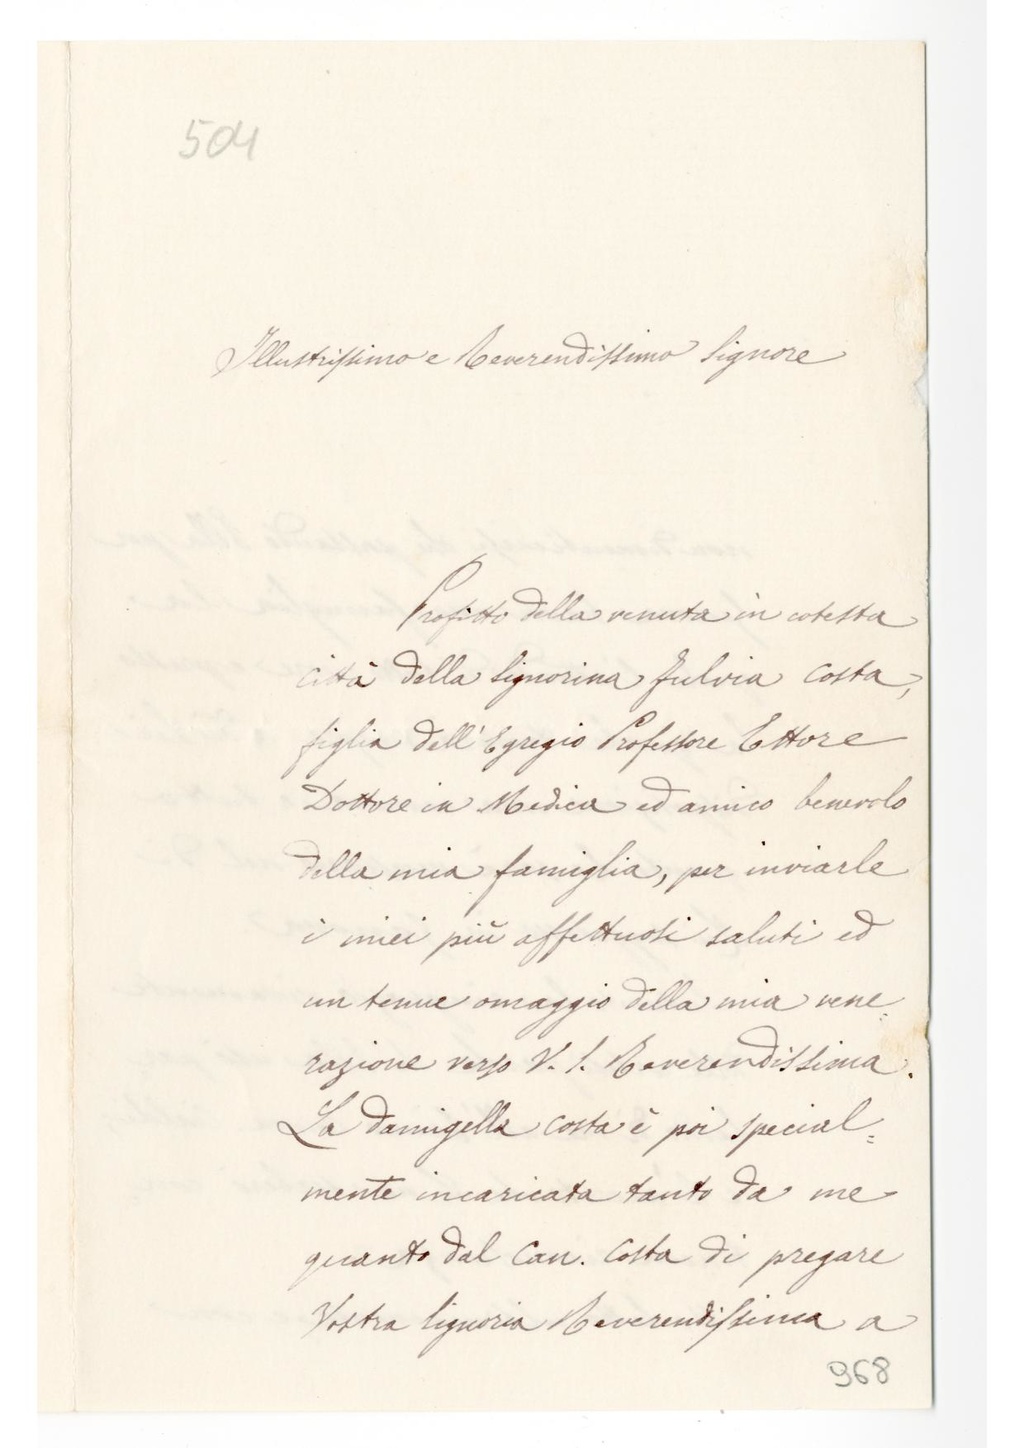 504
Illustrissimo e Reverendissimo Signore
Profitto della venuta in cotesta
città della Signorina Fulvia Costa,
figlia dell'Egregio Professore Ettore
Dottore in Medica ed amico benevolo
della mia famiglia, per inviarle
i miei più affettuosi saluti ed
un tenue omaggio della mia vene=
razione verso V. S. Reverendissima.
La damigella Costa è poi special=
mente incaricata tanto da me
quanto dal Can. Costa di pregare
Vostra Signoria Reverendissima a
968